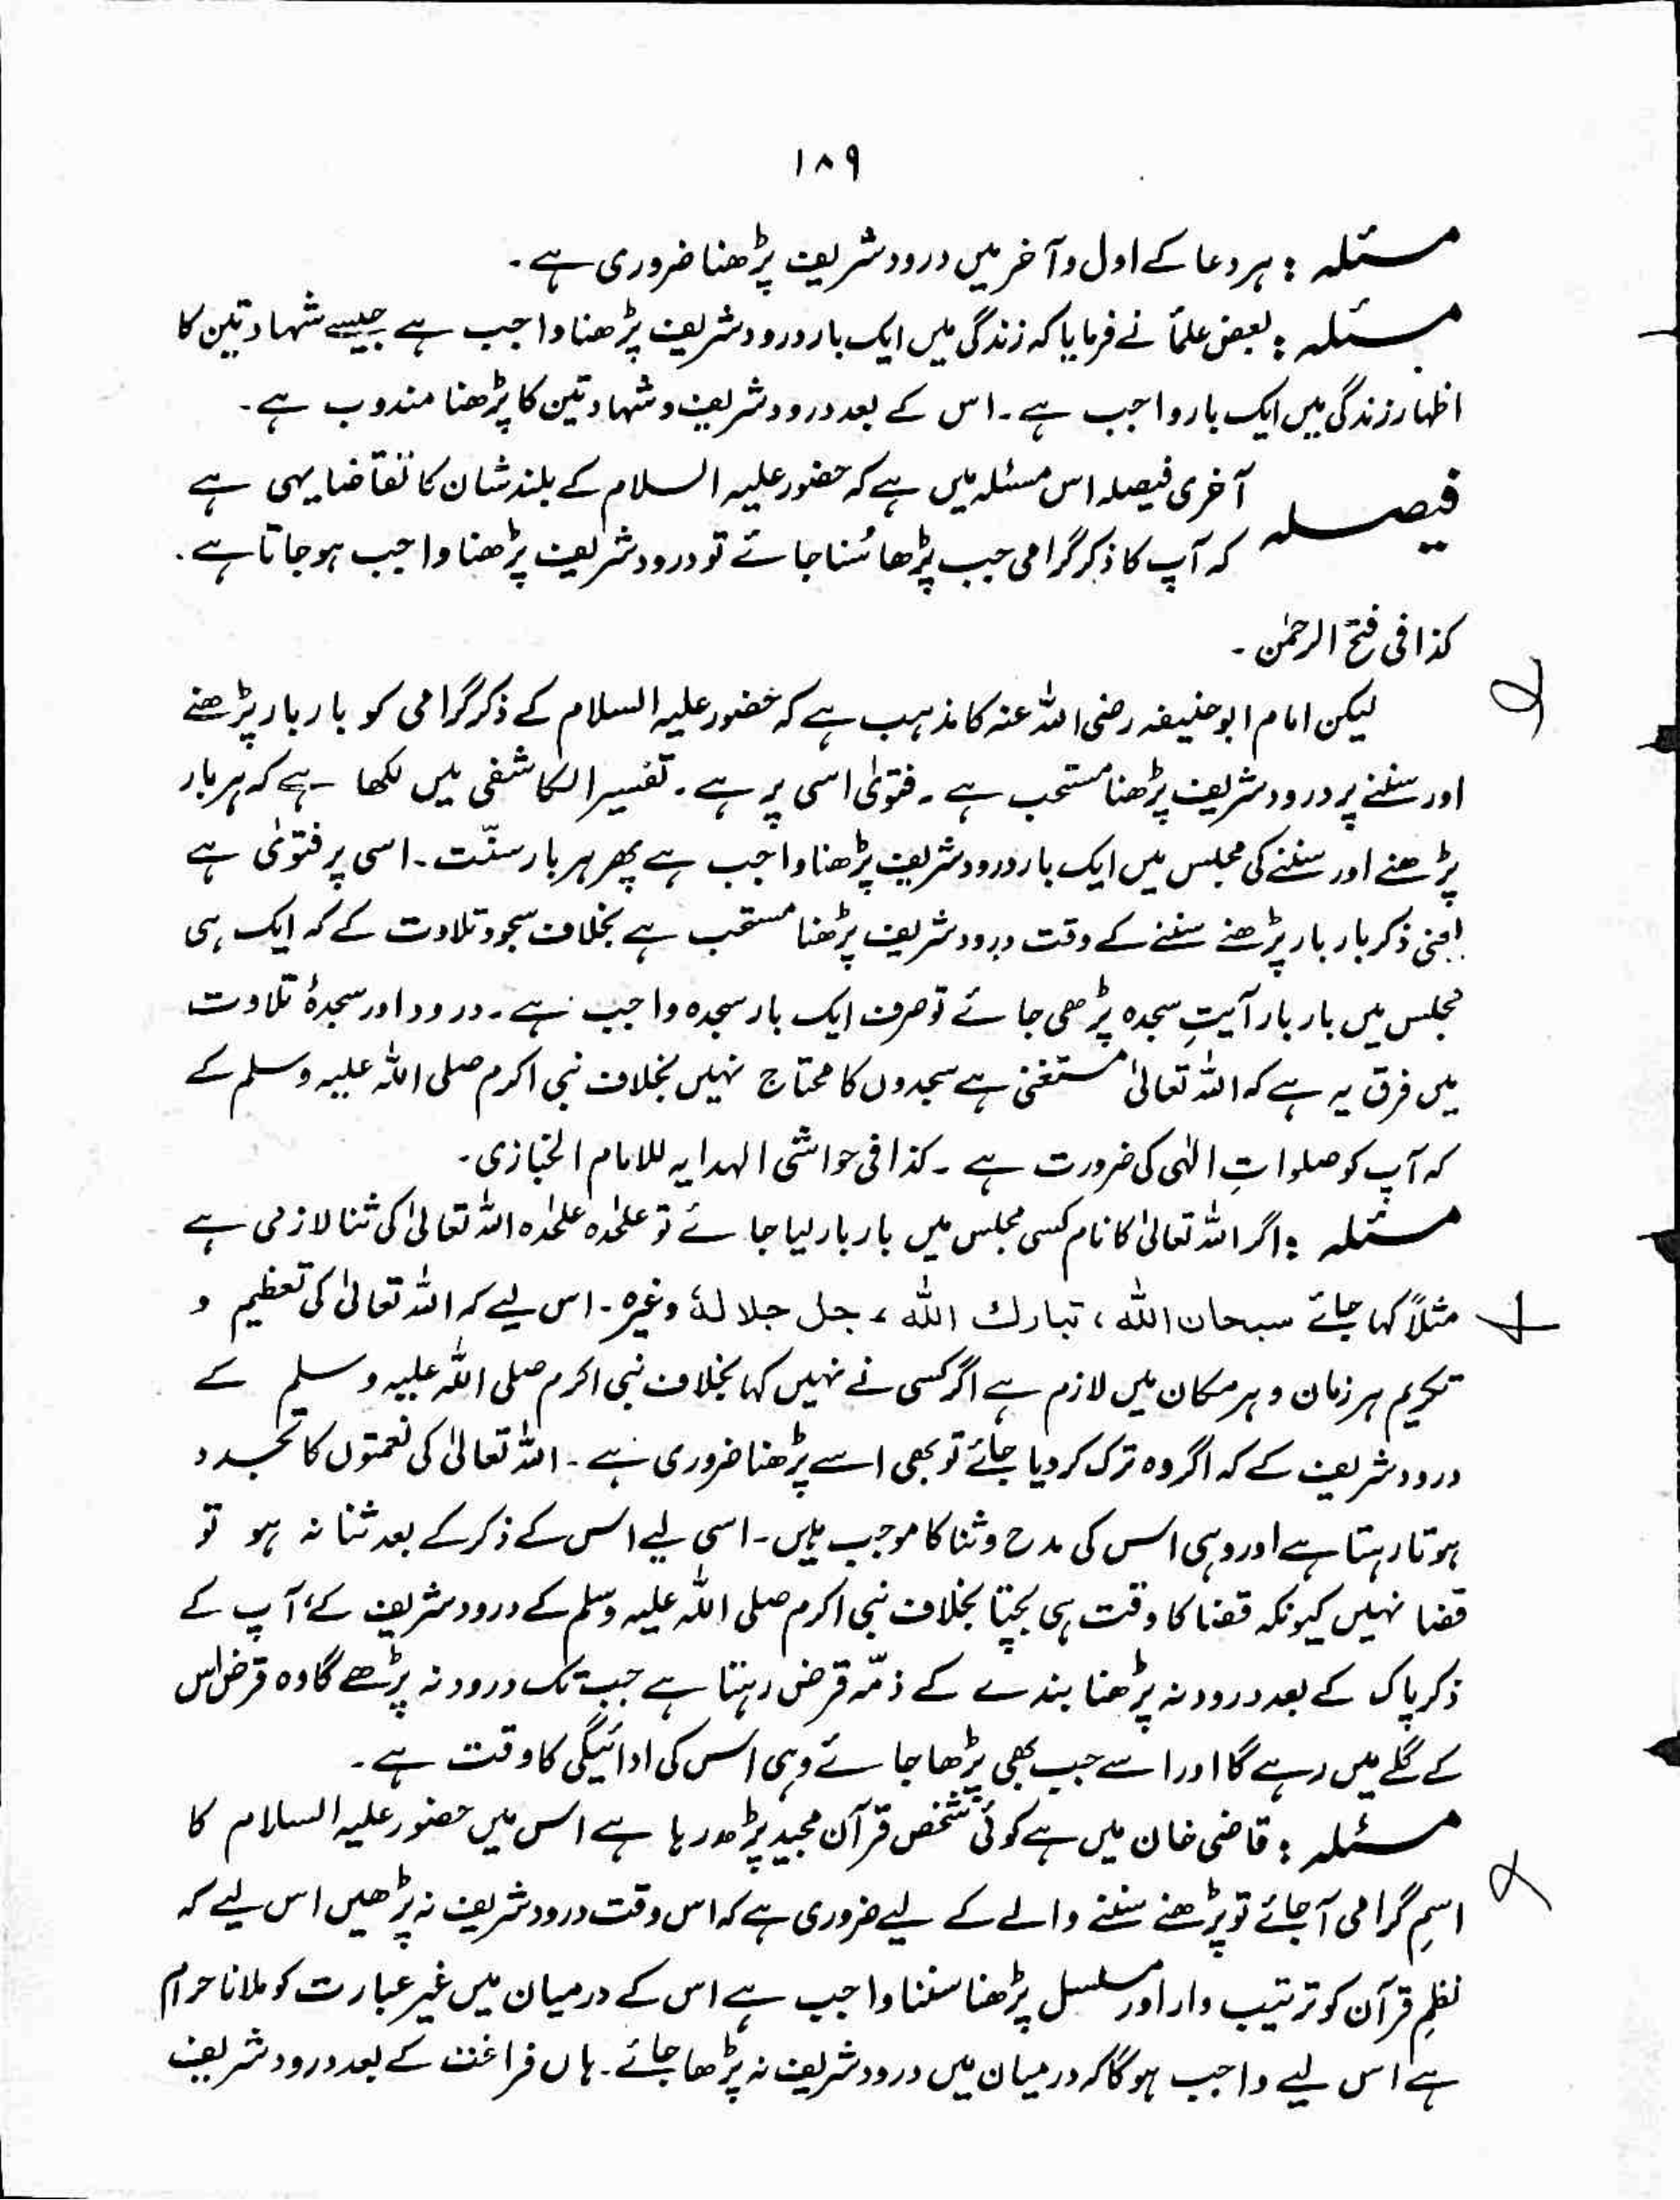 ۱۸۹
مسئلہ : ہر دعا کے اول و آخر میں درود شریف پڑھنا ضروری ہے۔
مسئلہ : بعض علمأ نے فرمایا کہ زندگی میں ایک بار درود شریف پڑھنا واجب ہے جیسے شہادتین کا
اظہار زندگی میں ایک بار واجب ہے۔ اس کے بعد درود شریف و شہادتین کا پڑھنا مندوب ہے۔
فیصلہ آخری فیصلہ اس مسئلہ میں ہے کہ حضور علیہ السلام کے بلند شان کا تقاضا یہی ہے
کہ آپ کا ذکر گرامی جب پڑھا سُنا جائے تو درود شریف پڑھنا واجب ہو جاتا ہے۔
کذا فی فتح الرحمٰن۔
لیکن امام ابوحنیفہ رضی اللہ عنہ کا مذہب ہے کہ حضور علیہ السلام کے ذکر گرامی کو بار بار پڑھنے
اور سننے پر درود شریف پڑھنا مستحب ہے۔ فتویٰ اسی پر ہے۔ تفسیر الکاشفی میں لکھا ہے کہ ہر بار
پڑھنے اور سننے کی مجلس میں ایک بار درود شریف پڑھنا واجب ہے پھر ہر بار سنّت۔ اسی پر فتویٰ ہے
یعنی ذکر بار بار پڑھنے سننے کے وقت درود شریف پڑھنا مستحب ہے بخلاف سجود تلاوت کے کہ ایک ہی
مجلس میں بار بار آیتِ سجدہ پڑھی جائے تو صرف ایک بار سجدہ واجب ہے۔ درود اور سجدۂ تلاوت
میں فرق یہ ہے کہ اللہ تعالیٰ مستغنی ہے سجدوں کا محتاج نہیں بخلاف نبی اکرم صلی اللہ علیہ وسلم کے
کہ آپ کو صلواتِ الٰہی کی ضرورت ہے۔ کذا فی حواشی الہدایہ للامام الخبازی۔
مسئلہ : اگر اللہ تعالیٰ کا نام کسی مجلس میں بار بار لیا جائے تو علٰحدہ علٰحدہ اللہ تعالیٰ کی ثنا لازمی ہے
مثلاً کہا جائے سبحان اللہ ، تبارك اللہ ، جل جلالہٗ وغیرہ۔ اس لیے کہ اللہ تعالیٰ کی تعظیم و
تکریم ہر زمان و ہر مکان میں لازم ہے اگر کسی نے نہیں کہا بخلاف نبی اکرم صلی اللہ علیہ وسلم کے
درود شریف کے کہ اگر وہ ترک کر دیا جائے تو بھی اسے پڑھنا ضروری ہے۔ اللہ تعالیٰ کی نعمتوں کا تجدد
ہوتا رہتا ہے اور وہی اس کی مدح و ثنا کا موجب ہیں۔ اسی لیے اس کے ذکر کے بعد ثنا نہ ہو تو
قضا نہیں کیونکہ قضا کا وقت ہی بچتا بخلاف نبی اکرم صلی اللہ علیہ وسلم کے درود شریف کے، آپ کے
ذکر پاک کے بعد درود نہ پڑھنا بندے کے ذمّہ قرض رہتا ہے جب تک درود نہ پڑھے گا وہ قرض اس
کے گلے میں رہے گا اور اسے جب بھی پڑھا جائے وہی اس کی ادائیگی کا وقت ہے۔
مسئلہ : قاضی خان میں ہے کوئی شخص قرآن مجید پڑھ رہا ہے اس میں حضور علیہ السلام کا
اسمِ گرامی آجائے تو پڑھنے سننے والے کے لیے ضروری ہے کہ اس وقت درود شریف نہ پڑھیں اس لیے کہ
نظمِ قرآن کو ترتیب وار اور مسلسل پڑھنا سننا واجب ہے اس کے درمیان میں غیر عبارت کو ملانا حرام
ہے اس لیے واجب ہوگا کہ درمیان میں درود شریف نہ پڑھا جائے۔ ہاں فراغت کے بعد درود شریف